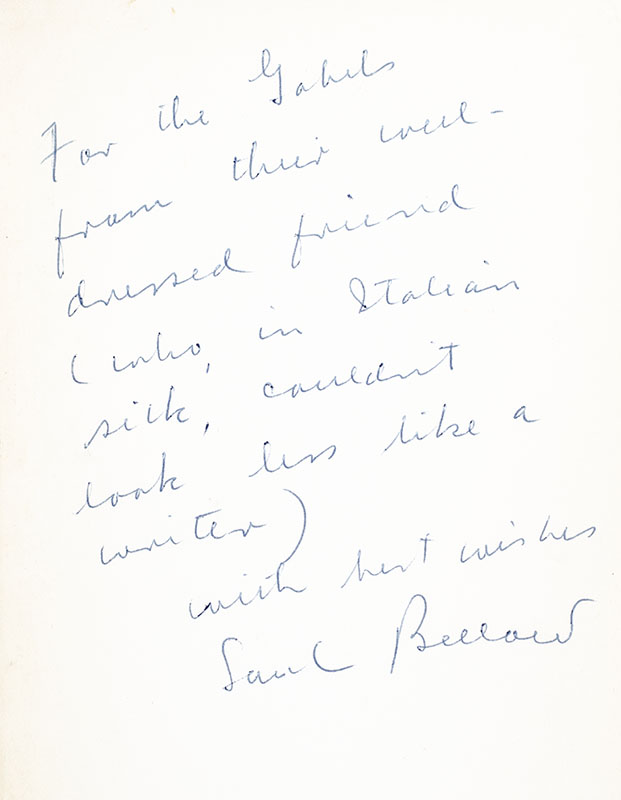 For the Gabels
from their well-
dressed friend
(who, in Italian
silk, couldn't
look less like a
writer)
with best wishes
Saul Bellow